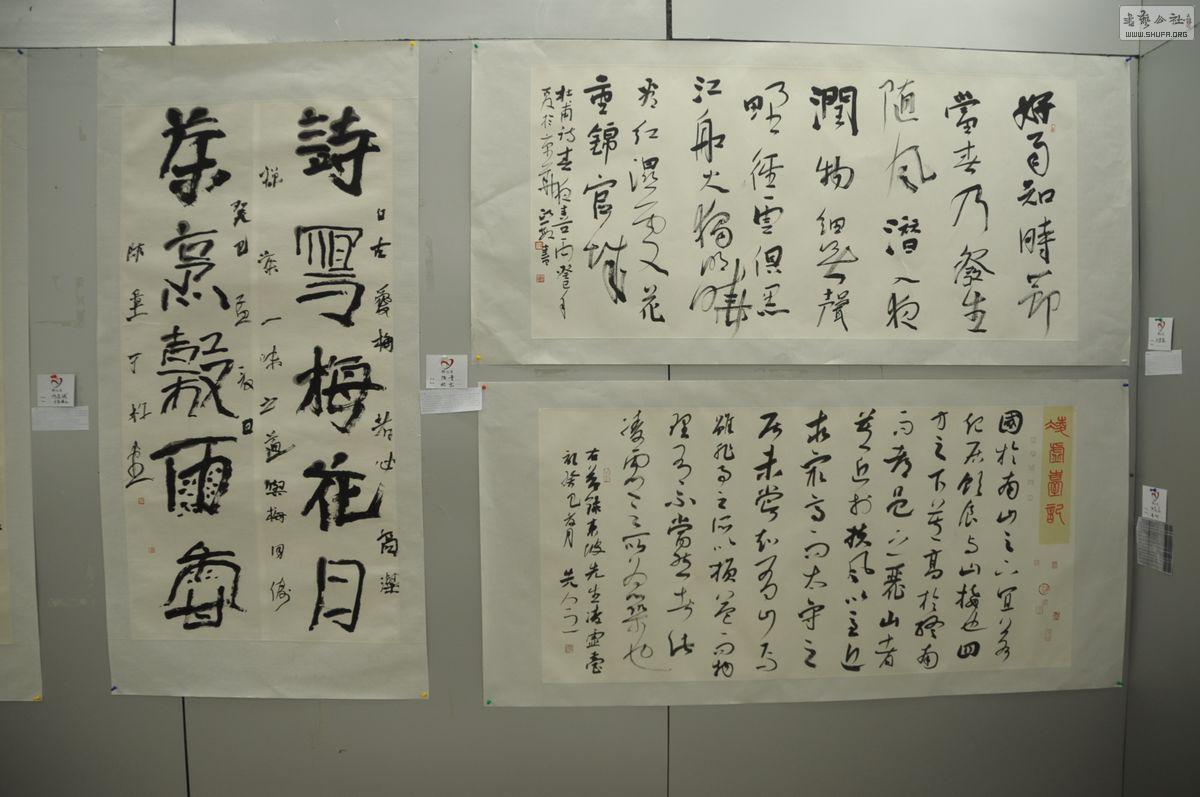 書藝公社
WWW.SHUFA.ORG
好雨知時節
當春乃發生
隨風潛入夜
潤物細無聲
野徑雲俱黑
江船火獨明曉
看紅濕處花
重錦官城
杜甫詩春夜喜雨
詩寫梅花月
茶烹穀雨香
自古愛梅者必高潔
禪茶一味之益與梅同
癸巳孟夏日
凌虛臺記
國於南山之下宜若
起居飲食與山接也四
方之下莫高於終南
而都邑之麗山者
莫近於扶風以至近
求最高而太守之
居未嘗知有山焉
雖非事之所以損益而物
理有不當然者此
凌虛之所為築也
右蘇東坡先生凌虛臺
記癸巳春月